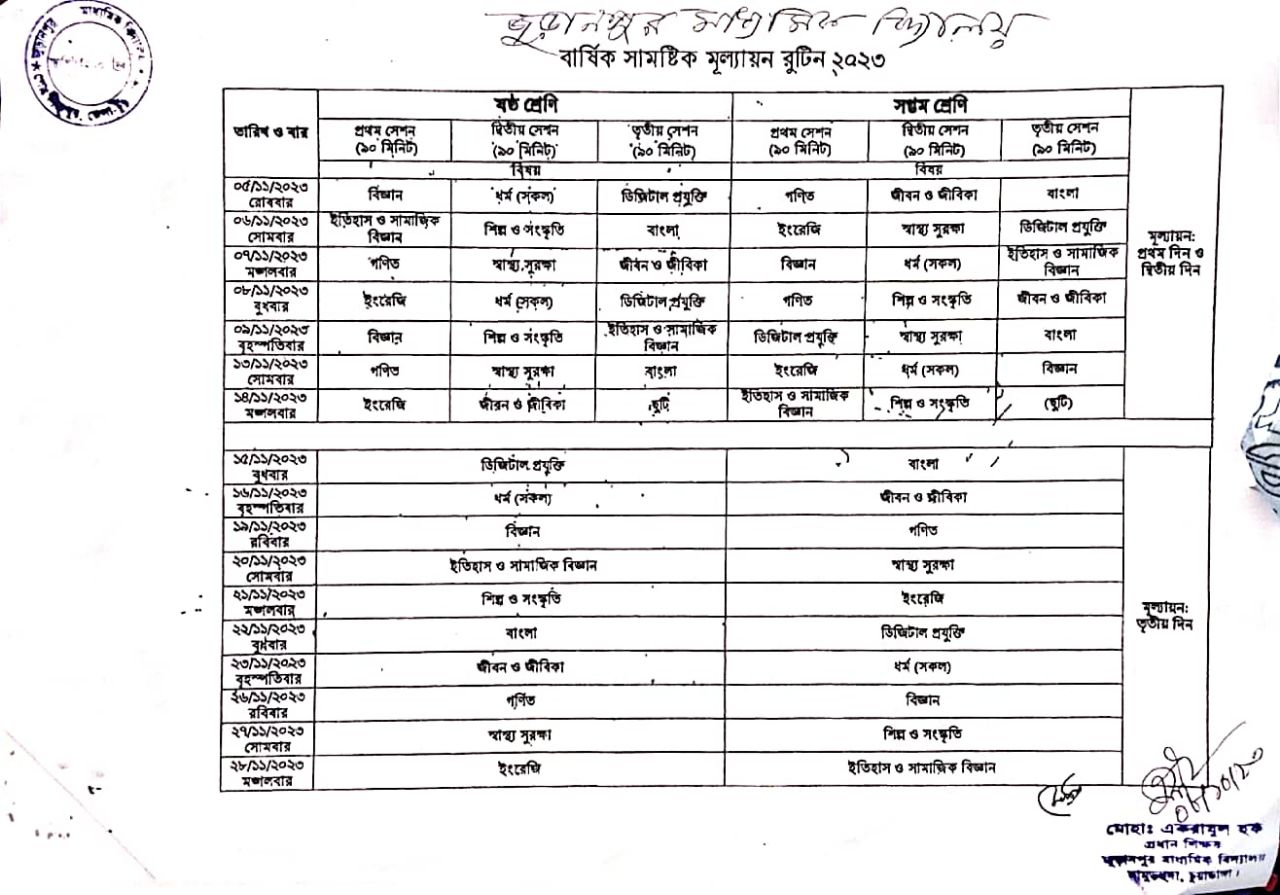 মাধ্যমিক বিদ্যালয়
বার্ষিক সামষ্টিক মূল্যায়ন রুটিন ২০২৩
তারিখ ও বার ষষ্ঠ শ্রেণি সপ্তম শ্রেণি
প্রথম সেশন দ্বিতীয় সেশন তৃতীয় সেশন প্রথম সেশন দ্বিতীয় সেশন তৃতীয় সেশন
(৯০ মিনিট) (৯০ মিনিট) (৯০ মিনিট) (৯০ মিনিট) (৯০ মিনিট) (৯০ মিনিট)
বিষয় বিষয়
০৫/১১/২০২৩ রোববার বিজ্ঞান ধর্ম (সকল) ডিজিটাল প্রযুক্তি গণিত জীবন ও জীবিকা বাংলা
০৬/১১/২০২৩ সোমবার ইতিহাস ও সামাজিক বিজ্ঞান শিল্প ও সংস্কৃতি বাংলা ইংরেজি স্বাস্থ্য সুরক্ষা ডিজিটাল প্রযুক্তি
মূল্যায়ন:
প্রথম দিন ও
দ্বিতীয় দিন
০৭/১১/২০২৩ মঙ্গলবার গণিত স্বাস্থ্য সুরক্ষা জীবন ও জীবিকা বিজ্ঞান ধর্ম (সকল) ইতিহাস ও সামাজিক বিজ্ঞান
০৮/১১/২০২৩ বুধবার ইংরেজি ধর্ম (সকল) ডিজিটাল প্রযুক্তি গণিত শিল্প ও সংস্কৃতি জীবন ও জীবিকা
০৯/১১/২০২৩ বৃহস্পতিবার বিজ্ঞান শিল্প ও সংস্কৃতি ইতিহাস ও সামাজিক বিজ্ঞান ডিজিটাল প্রযুক্তি স্বাস্থ্য সুরক্ষা বাংলা
১৩/১১/২০২৩ সোমবার গণিত স্বাস্থ্য সুরক্ষা বাংলা ইংরেজি ধর্ম (সকল) বিজ্ঞান
১৪/১১/২০২৩ মঙ্গলবার ইংরেজি জীবন ও জীবিকা ছুটি ইতিহাস ও সামাজিক বিজ্ঞান শিল্প ও সংস্কৃতি (ছুটি)
১৫/১১/২০২৩ বুধবার ডিজিটাল প্রযুক্তি বাংলা
১৬/১১/২০২৩ বৃহস্পতিবার ধর্ম (সকল) জীবন ও জীবিকা
১৯/১১/২০২৩ রবিবার বিজ্ঞান গণিত
২০/১১/২০২৩ সোমবার ইতিহাস ও সামাজিক বিজ্ঞান স্বাস্থ্য সুরক্ষা
২১/১১/২০২৩ মঙ্গলবার শিল্প ও সংস্কৃতি ইংরেজি
মূল্যায়ন:
তৃতীয় দিন
২২/১১/২০২৩ বুধবার বাংলা ডিজিটাল প্রযুক্তি
২৩/১১/২০২৩ বৃহস্পতিবার জীবন ও জীবিকা ধর্ম (সকল)
২৬/১১/২০২৩ রবিবার গণিত বিজ্ঞান
২৭/১১/২০২৩ সোমবার স্বাস্থ্য সুরক্ষা শিল্প ও সংস্কৃতি
২৮/১১/২০২৩ মঙ্গলবার ইংরেজি ইতিহাস ও সামাজিক বিজ্ঞান
মোহাঃ একরামুল হক
প্রধান শিক্ষক
মাধ্যমিক বিদ্যালয়